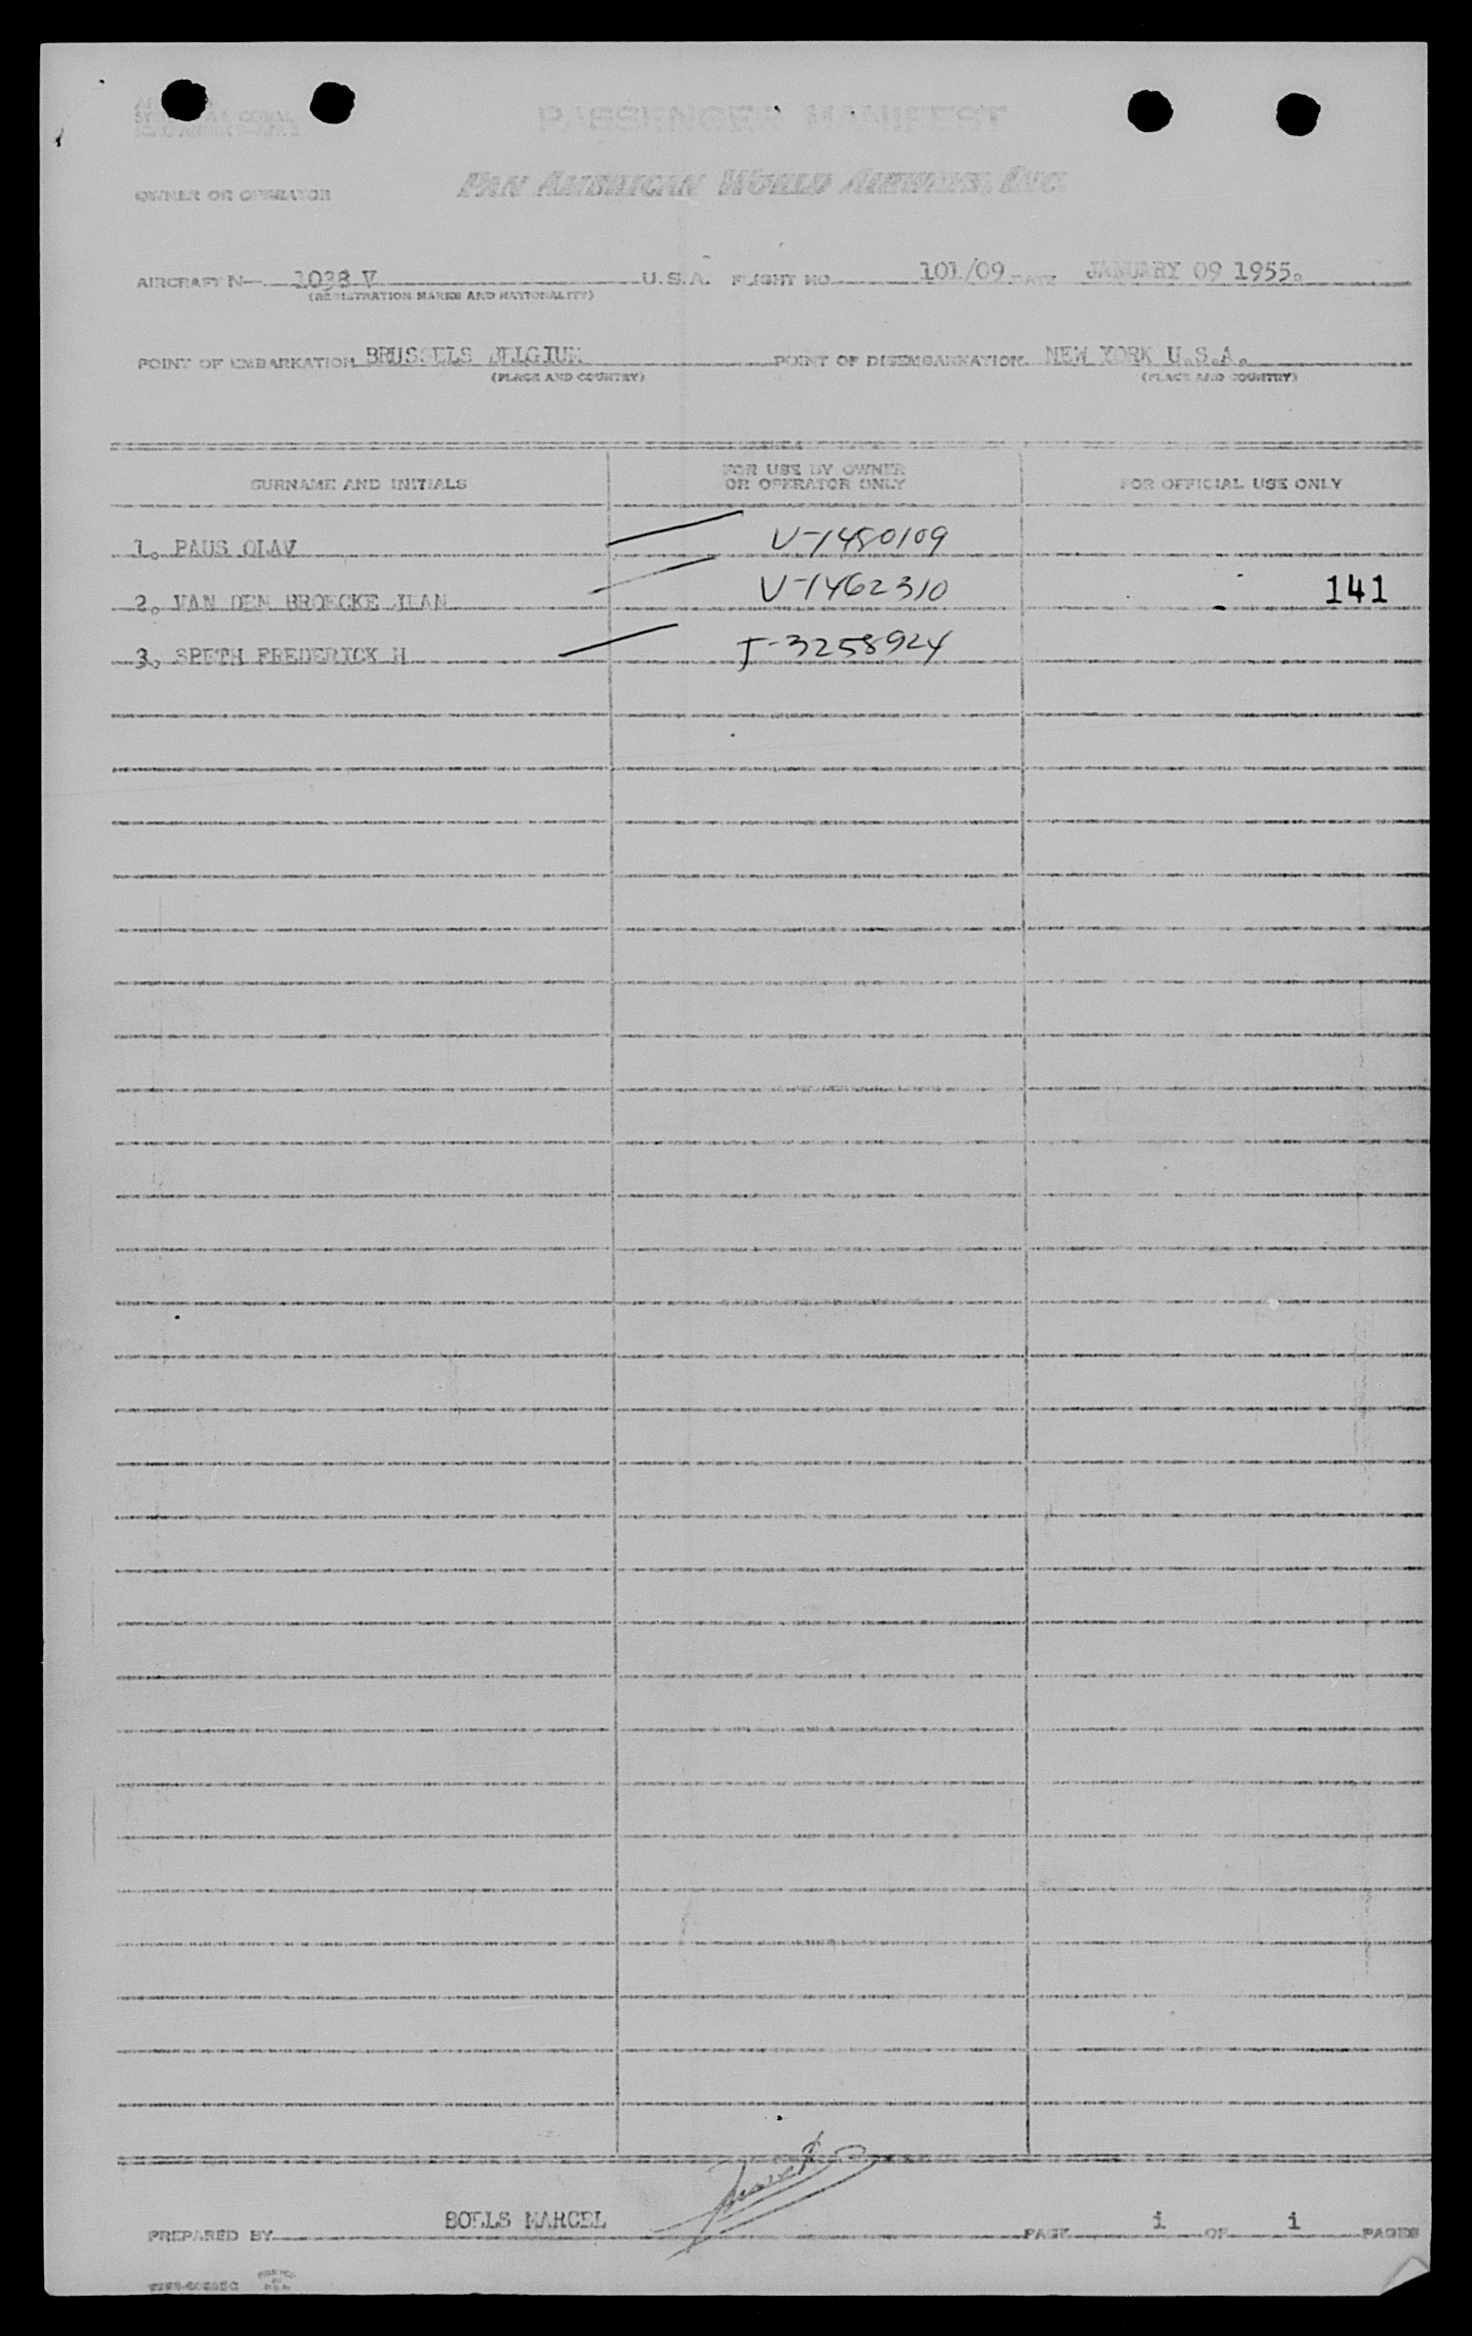 PASSENGER MANIFEST
OWNER OR OPERATOR PAN AMERICAN WORLD AIRWAYS, INC.
AIRCRAFT N- 1038 V U.S.A. FLIGHT NO. 101/09 DATE JANUARY 09 1955.
(REGISTRATION MARKS AND NATIONALITY)
POINT OF EMBARKATION BRUSSELS BELGIUM POINT OF DISEMBARKATION NEW YORK U.S.A.
(PLACE AND COUNTRY) (PLACE AND COUNTRY)
SURNAME AND INITIALS FOR USE BY OWNER OR OPERATOR ONLY FOR OFFICIAL USE ONLY
1. PAUS OLAV V-1480109
2. VAN DEN BROECKE JEAN V-1462310 141
3. SPETH FREDERICK H I-3258924
PREPARED BY BOELS MARCEL PAGE 1 OF 1 PAGES